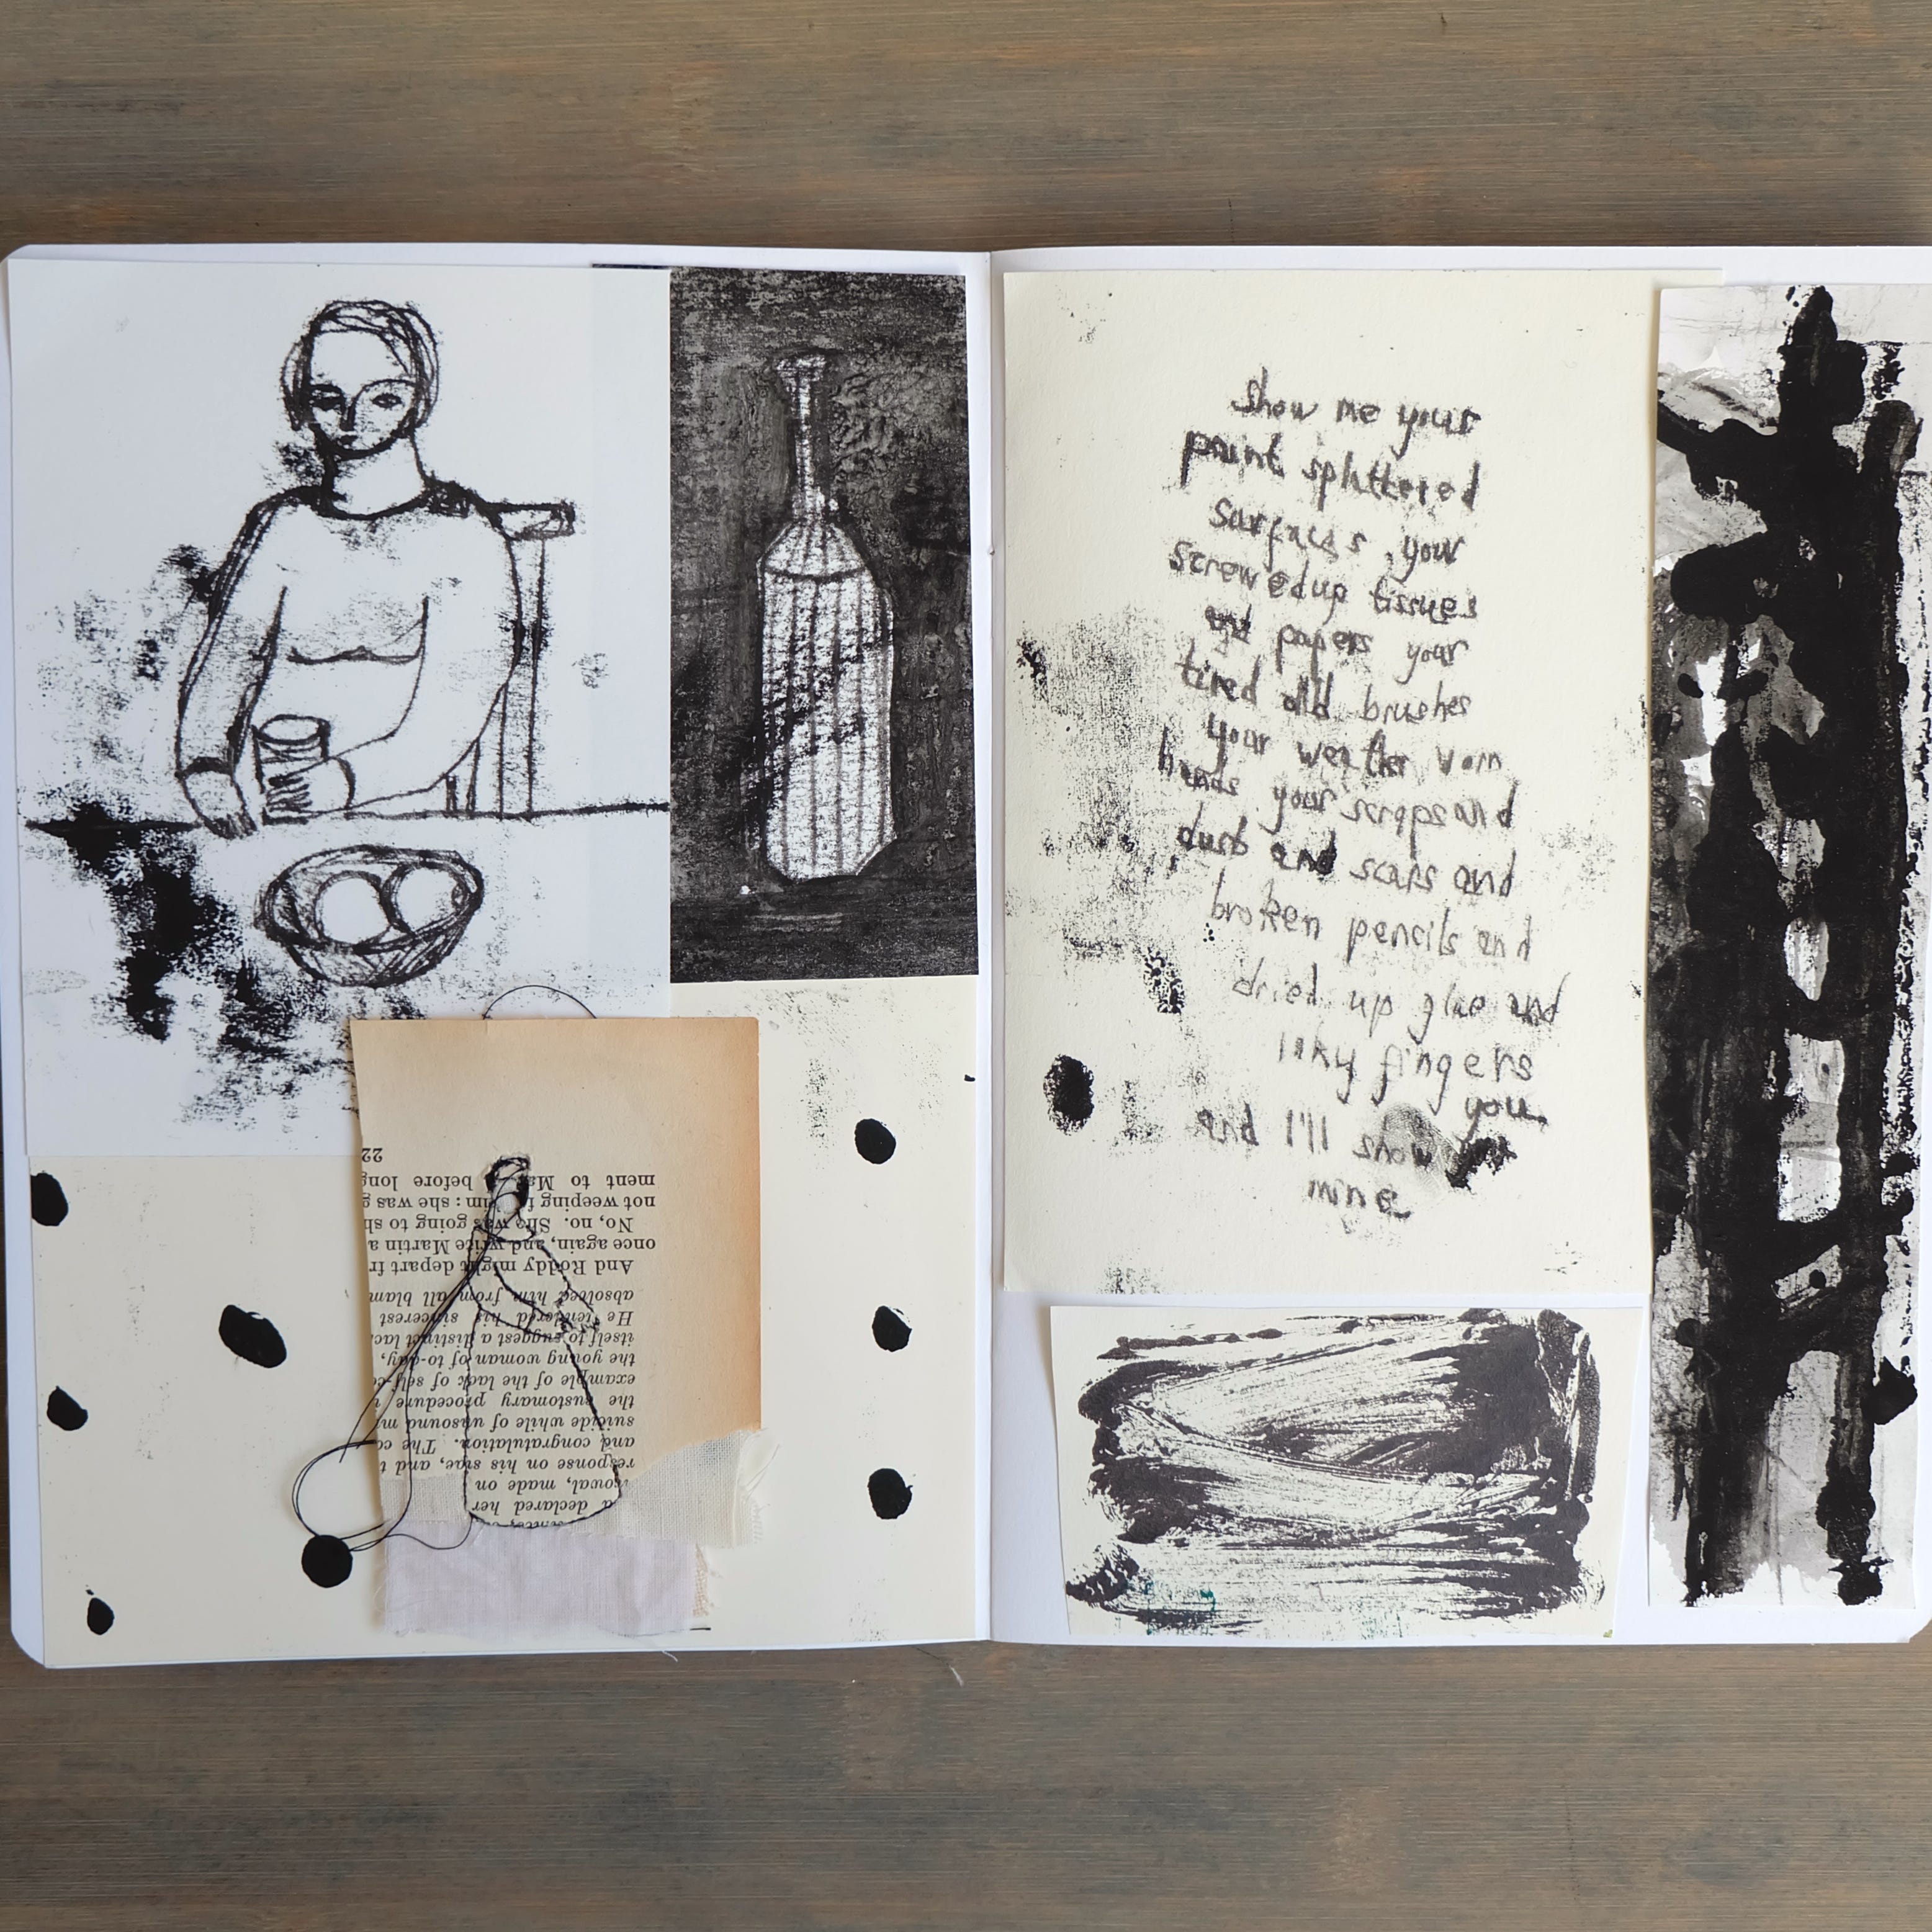 show me your
paint splattered
surfaces, your
screwed up tissues
and papers your
tired old brushes
your weather worn
hands your scraps and
dust and scars and
broken pencils and
dried up glue and
inky fingers
you
and I'll show you
mine
a declared her
made on
response on his side, and t
and congratulation. The co
suicide while of unsound m
the customary procedure
example of the lack of self-c
the young woman of to-day,
itself to suggest a distinct lac
He tendered his sincerest
absolved him from all blam
And Roddy might depart fr
once again, and write Martin a
No, no. She was going to sh
not weeping him: she was g
ment to before long
22